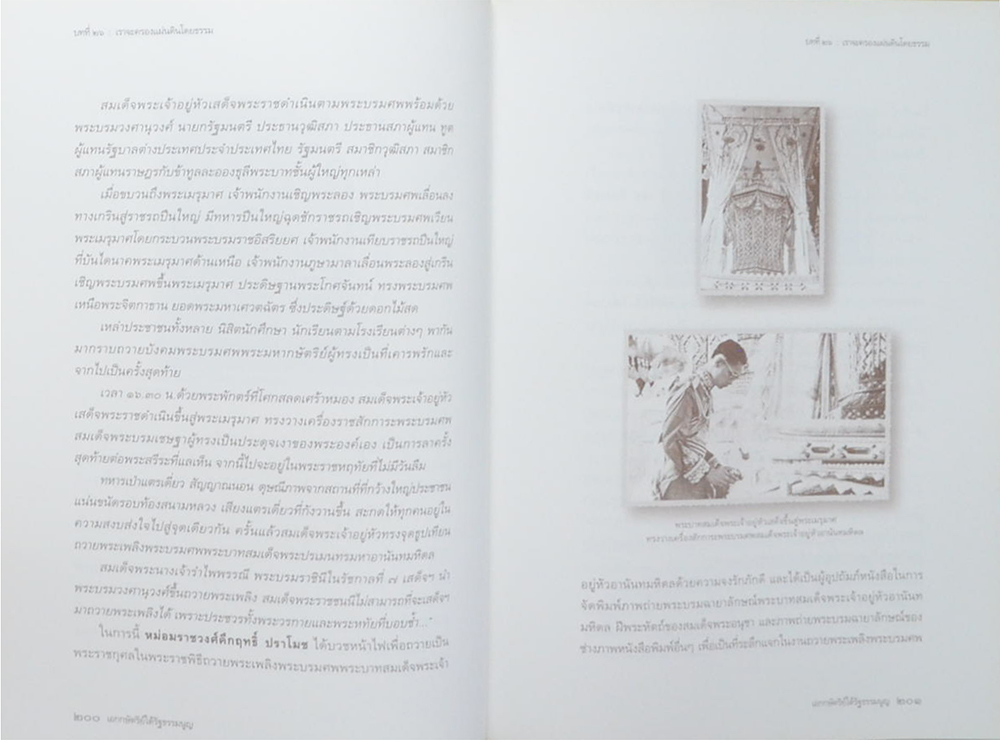 บทที่ ๒๖ : เราจะครองแผ่นดินโดยธรรม
สมเด็จพระเจ้าอยู่หัวเสด็จพระราชดำเนินตามพระบรมศพพร้อมด้วย
พระบรมวงศานุวงศ์ นายกรัฐมนตรี ประธานวุฒิสภา ประธานสภาผู้แทน ทูต
ผู้แทนรัฐบาลต่างประเทศประจำประเทศไทย รัฐมนตรี สมาชิกวุฒิสภา สมาชิก
สภาผู้แทนราษฎรกับข้าทูลละอองธุลีพระบาทชั้นผู้ใหญ่ทุกเหล่า
เมื่อขบวนถึงพระเมรุมาศ เจ้าพนักงานเชิญพระลอง พระบรมศพเลื่อนลง
ทางเกรินสู่ราชรถปืนใหญ่ มีทหารปืนใหญ่ฉุดชักราชรถเชิญพระบรมศพเวียน
พระเมรุมาศโดยกระบวนพระบรมราชอิสริยยศ เจ้าพนักงานเทียบราชรถปืนใหญ่
ที่บันไดนาคพระเมรุมาศด้านเหนือ เจ้าพนักงานภูษามาลาเลื่อนพระลองสู่เกริน
เชิญพระบรมศพขึ้นพระเมรุมาศ ประดิษฐานพระโกศจันทน์ ทรงพระบรมศพ
เหนือพระจิตกาธาน ยอดพระมหาเศวตฉัตร ซึ่งประดิษฐ์ด้วยดอกไม้สด
เหล่าประชาชนทั้งหลาย นิสิตนักศึกษา นักเรียนตามโรงเรียนต่างๆ พากัน
มากราบถวายบังคมพระบรมศพพระมหากษัตริย์ผู้ทรงเป็นที่เคารพรักและ
จากไปเป็นครั้งสุดท้าย
เวลา ๑๖.๓๐ น.ด้วยพระพักตร์ที่โศกสลดเศร้าหมอง สมเด็จพระเจ้าอยู่หัว
เสด็จพระราชดำเนินขึ้นสู่พระเมรุมาศ ทรงวางเครื่องราชสักการะพระบรมศพ
สมเด็จพระบรมเชษฐาผู้ทรงเป็นประดุจเงาของพระองค์เอง เป็นการลาครั้ง
สุดท้ายต่อพระสรีระที่แลเห็น จากนี้ไปจะอยู่ในพระราชหฤทัยที่ไม่มีวันลืม
ทหารเป่าแตรเดี่ยว สัญญาณนอน ดุษณีภาพจากสถานที่ที่กว้างใหญ่ประชาชน
แน่นขนัดรอบท้องสนามหลวง เสียงแตรเดี่ยวที่กังวานขึ้น สะกดให้ทุกคนอยู่ใน
ความสงบส่งใจไปสู่จุดเดียวกัน ครั้นแล้วสมเด็จพระเจ้าอยู่หัวทรงจุดธูปเทียน
ถวายพระเพลิงพระบรมศพพระบาทสมเด็จพระปรเมนทรมหาอานันทมหิดล
สมเด็จพระนางเจ้ารำไพพรรณี พระบรมราชินีในรัชกาลที่ ๗ เสด็จฯ นำ
พระบรมวงศานุวงศ์ขึ้นถวายพระเพลิง สมเด็จพระราชชนนีไม่สามารถที่จะเสด็จฯ
มาถวายพระเพลิงได้ เพราะประชวรทั้งพระวรกายและพระหทัยที่บอบช้ำ..."
ในการนี้ หม่อมราชวงศ์คึกฤทธิ์ ปราโมช ได้บวชหน้าไฟเพื่อถวายเป็น
พระราชกุศลในพระราชพิธีถวายพระเพลิงพระบรมศพพระบาทสมเด็จพระเจ้า
๒๐๐ เอกกษัตริย์ใต้รัฐธรรมนูญ
บทที่ ๒๖ : เราจะครองแผ่นดินโดยธรรม
พระบาทสมเด็จพระเจ้าอยู่หัวเสด็จขึ้นสู่พระเมรุมาศ
ทรงวางเครื่องสักการะพระบรมศพสมเด็จพระเจ้าอยู่หัวอานันทมหิดล
อยู่หัวอานันทมหิดลด้วยความจงรักภักดี และได้เป็นผู้อุปถัมภ์หนังสือในการ
จัดพิมพ์ภาพถ่ายพระบรมฉายาลักษณ์พระบาทสมเด็จพระเจ้าอยู่หัวอานันท
มหิดล ฝีพระหัตถ์ของสมเด็จพระอนุชา และภาพถ่ายพระบรมฉายาลักษณ์ของ
ช่างภาพหนังสือพิมพ์อื่นๆ เพื่อเป็นที่ระลึกแจกในงานถวายพระเพลิงพระบรมศพ
เอกกษัตริย์ใต้รัฐธรรมนูญ ๒๐๑